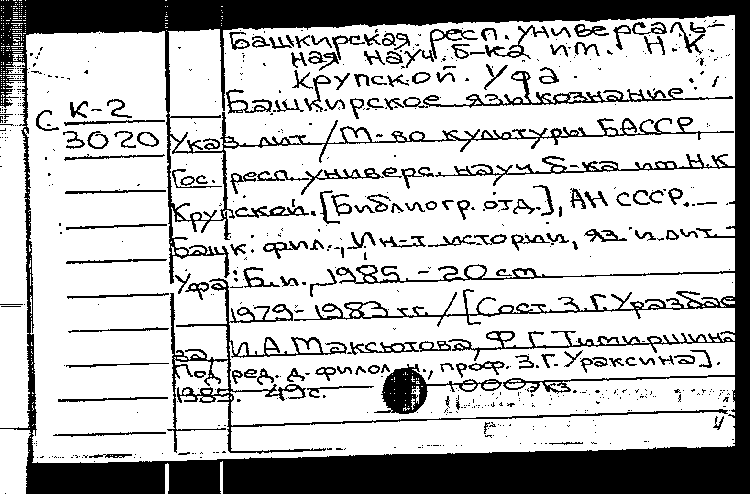 Башкирская респ. универсаль-
ная науч. б-ка им. Н.К.
Крупской. Уфа.
С К-2
3020
Башкирское языкознание:
Указ. лит / М-во культуры БАССР,
Гос. респ. универс. науч. б-ка им. Н.К
Крупской. [Библиогр. отд.], АН СССР.
Башк. фил., Ин-т истории, яз. и лит -
Уфа: Б.и., 1985. - 20 см.
1979-1983 гг. / [Сост. З.Г. Уразбае
ва, И.А. Максютова, Ф.Г. Тимиршина
Под ред. д. филол. н., проф. З.Г. Ураксина].
1985. 49 с. 1000 экз.